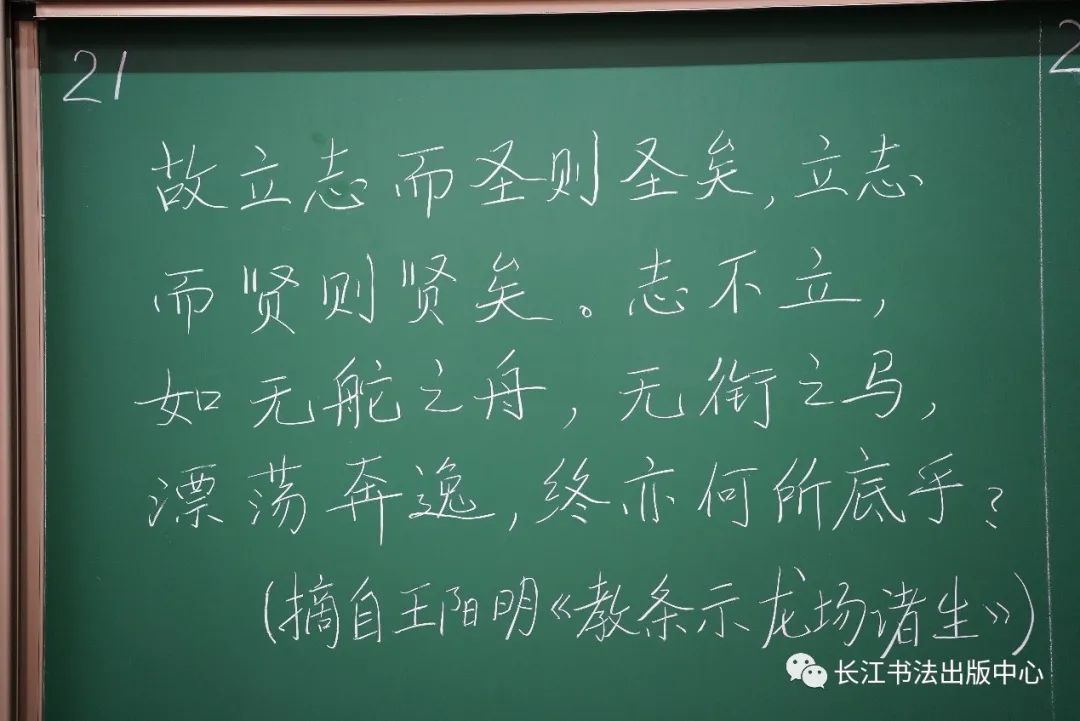 21
故立志而圣则圣矣,立志
而贤则贤矣。志不立,
如无舵之舟,无衔之马,
漂荡奔逸,终亦何所底乎?
(摘自王阳明《教条示龙场诸生》)
长江书法出版中心
2